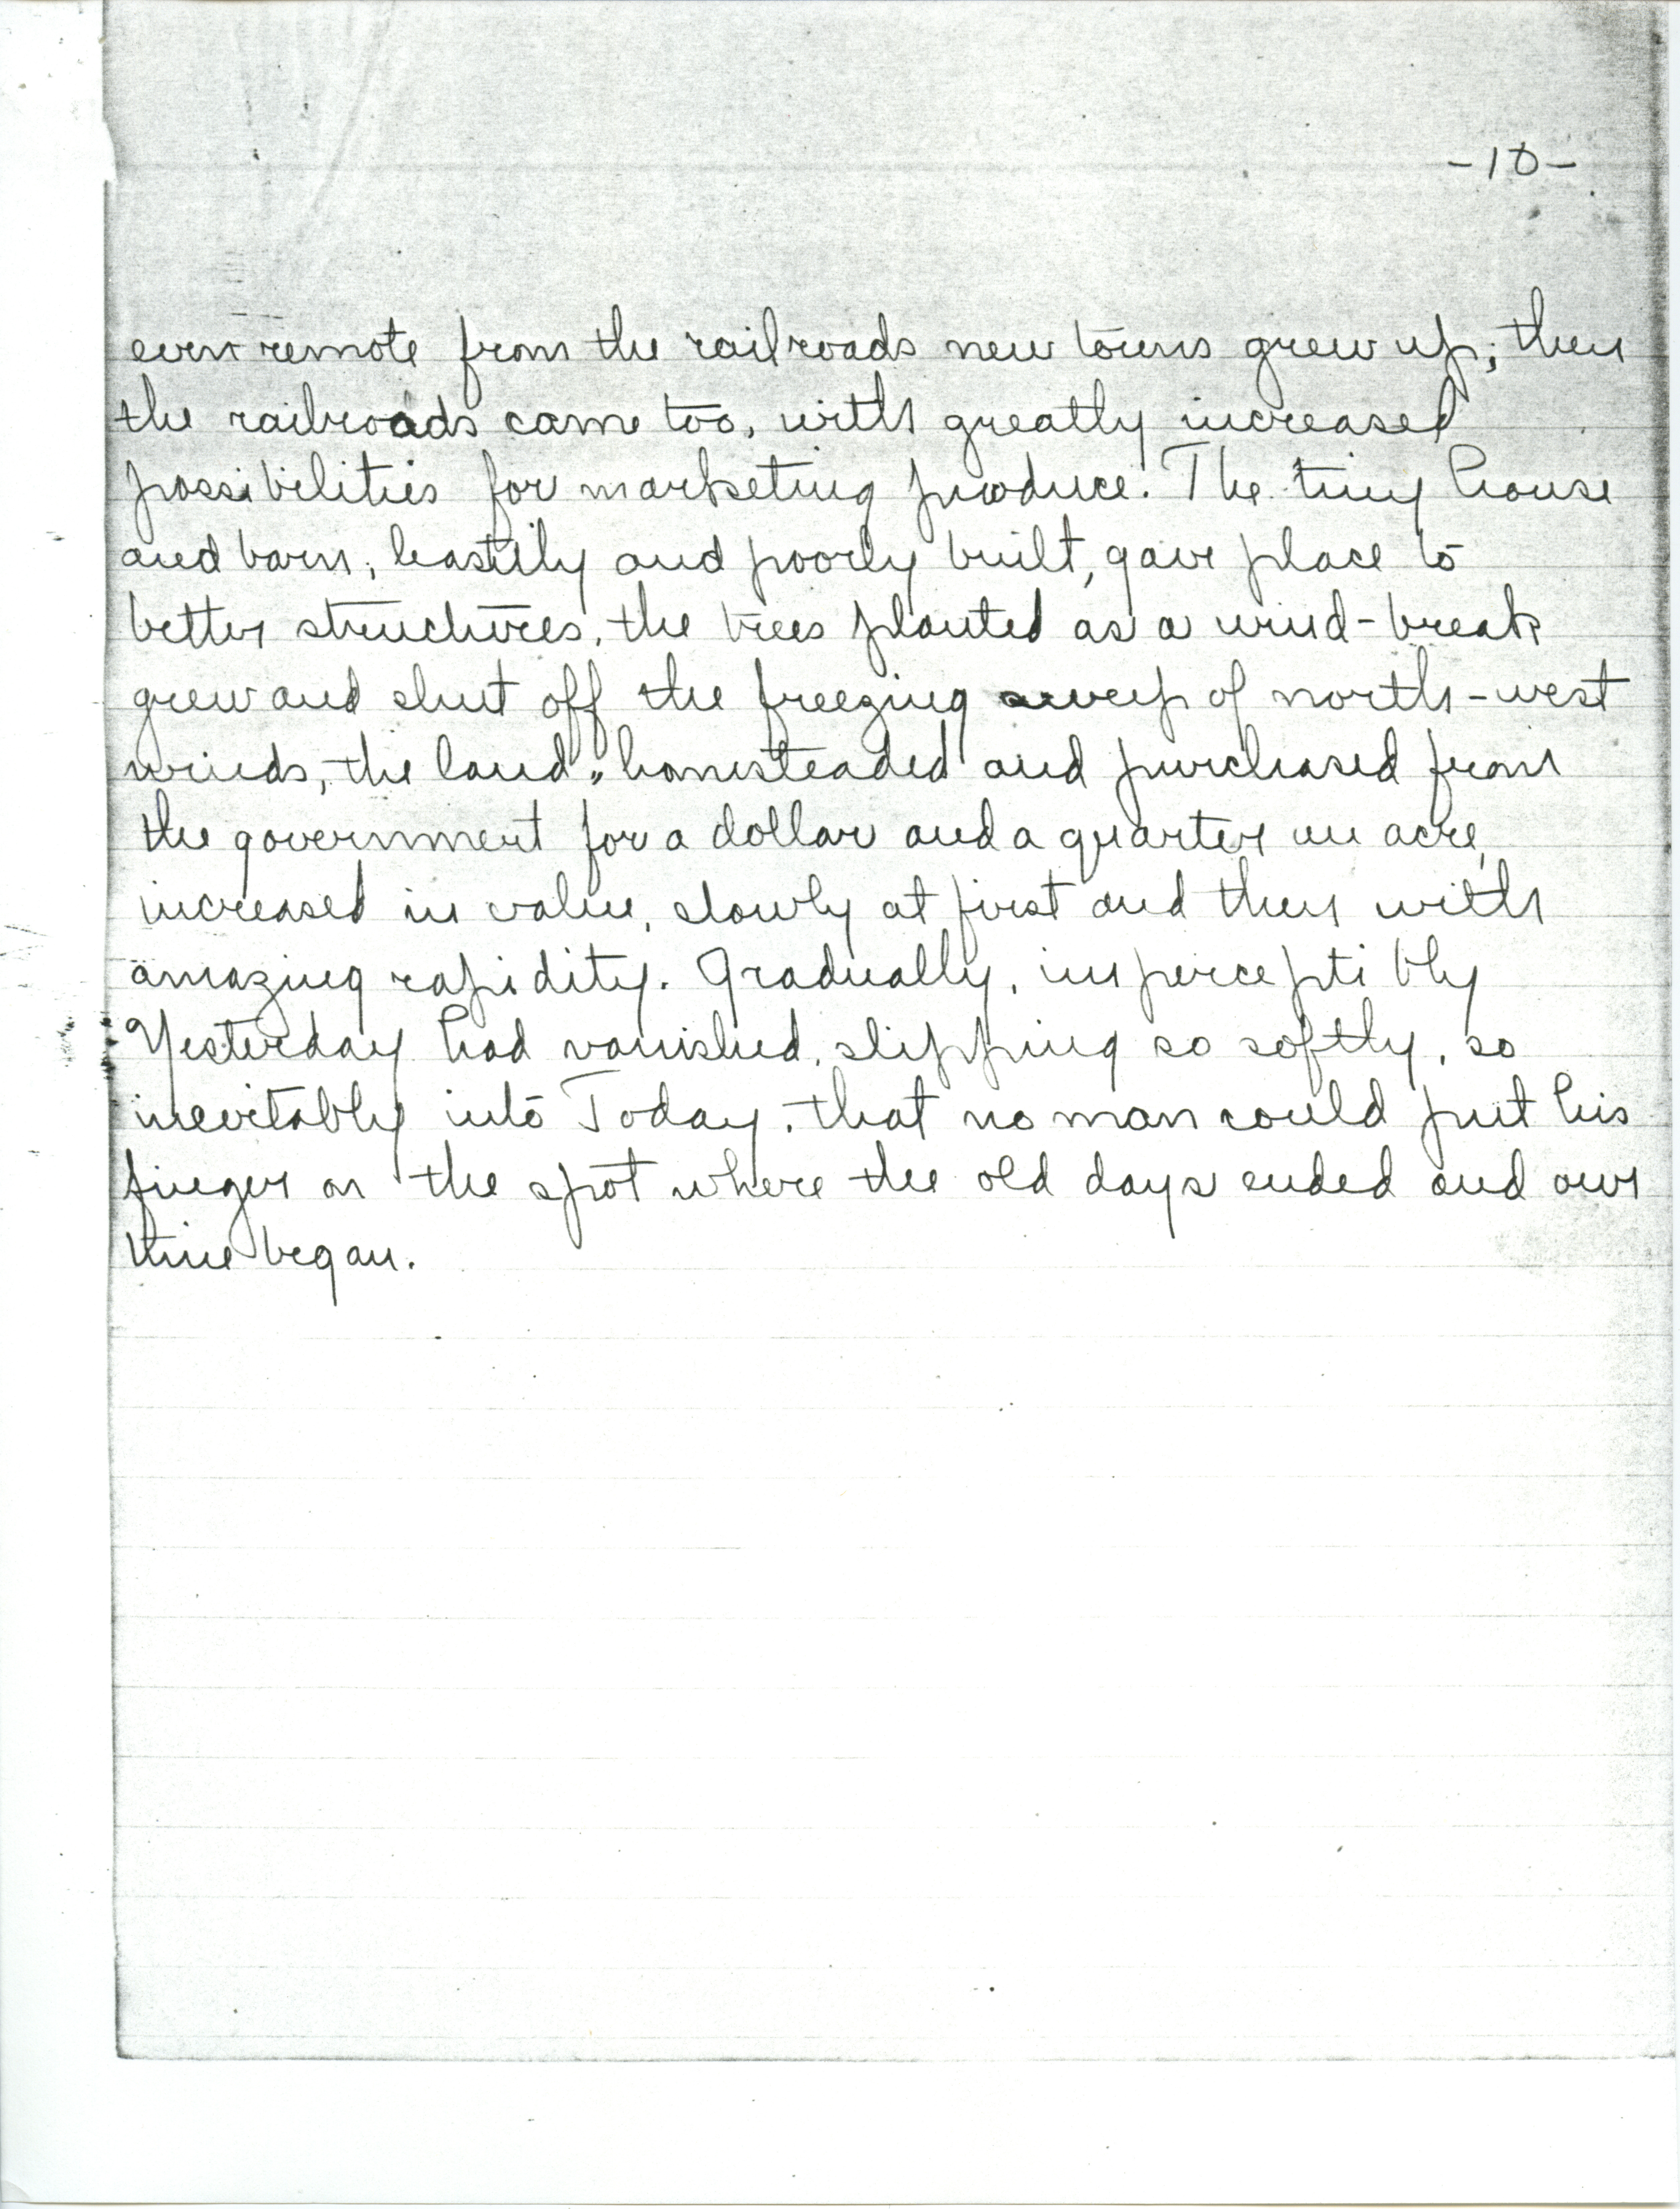 -10-
even remote from the railroads new towns grew up; then
the railroads came too, with greatly increased
possibilities for marketing produce. The tiny house
and barn, hastily and poorly built, gave place to
better structures, the trees planted as a wind-break
grew and shut off the freezing sweep of north-west
winds, the land, homesteaded and purchased from
the government for a dollar and a quarter an acre,
increased in value, slowly at first and then with
amazing rapidity. Gradually, imperceptibly
Yesterday had vanished, slipping so softly, so
inevitably into Today, that no man could put his
finger on the spot where the old days ended and our
time began.